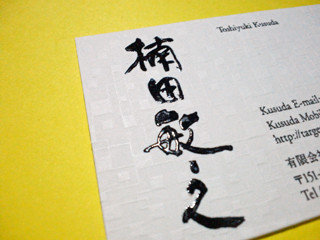 Toshiyuki Kusuda
楠田敏之
Kusuda E-mail:
Kusuda Mobil
http://targe
有限会
〒151-
Tel